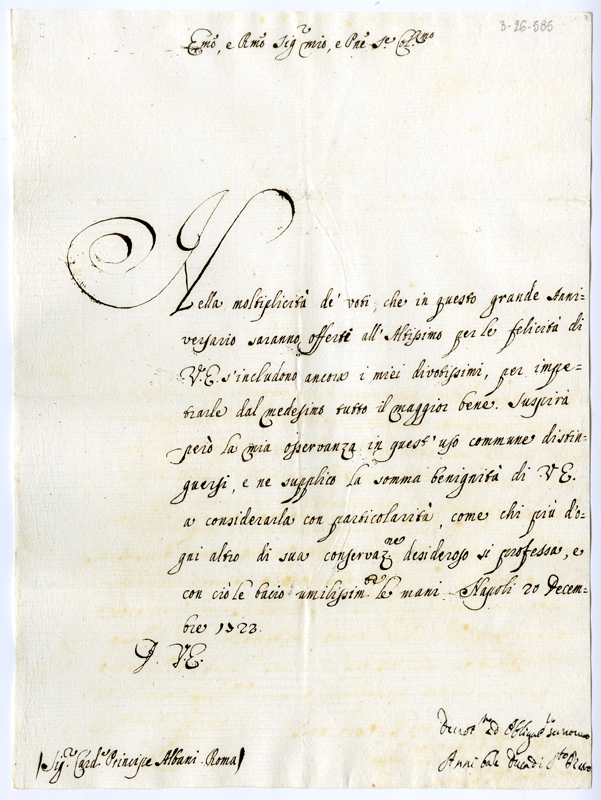 3-26-585
Emo, e Rmo Sigr mio, e Pne Se Colmo
Nella moltiplicità de' voti, che in questo grande Anni-
versario saranno offerti all'Altissimo per le felicità di
V.E. s'includono ancora i miei divotissimi, per impe-
trarle dal medesimo tutto il maggior bene. Suspira
però la mia osservanza in quest'uso commune distin-
guersi, e ne supplico la somma benignità di V.E.
a considerarla con particolarità, come chi più d'o-
gni altro di sua conservazne desideroso si professa, e
con ciò le bacio umilissimte le mani. Napoli 20 Decem-
bre 1723.
D. V.E.
Sigr Cardle Principe Albani. Roma
Devotmo ed Obligatmo
Annibale Duca di